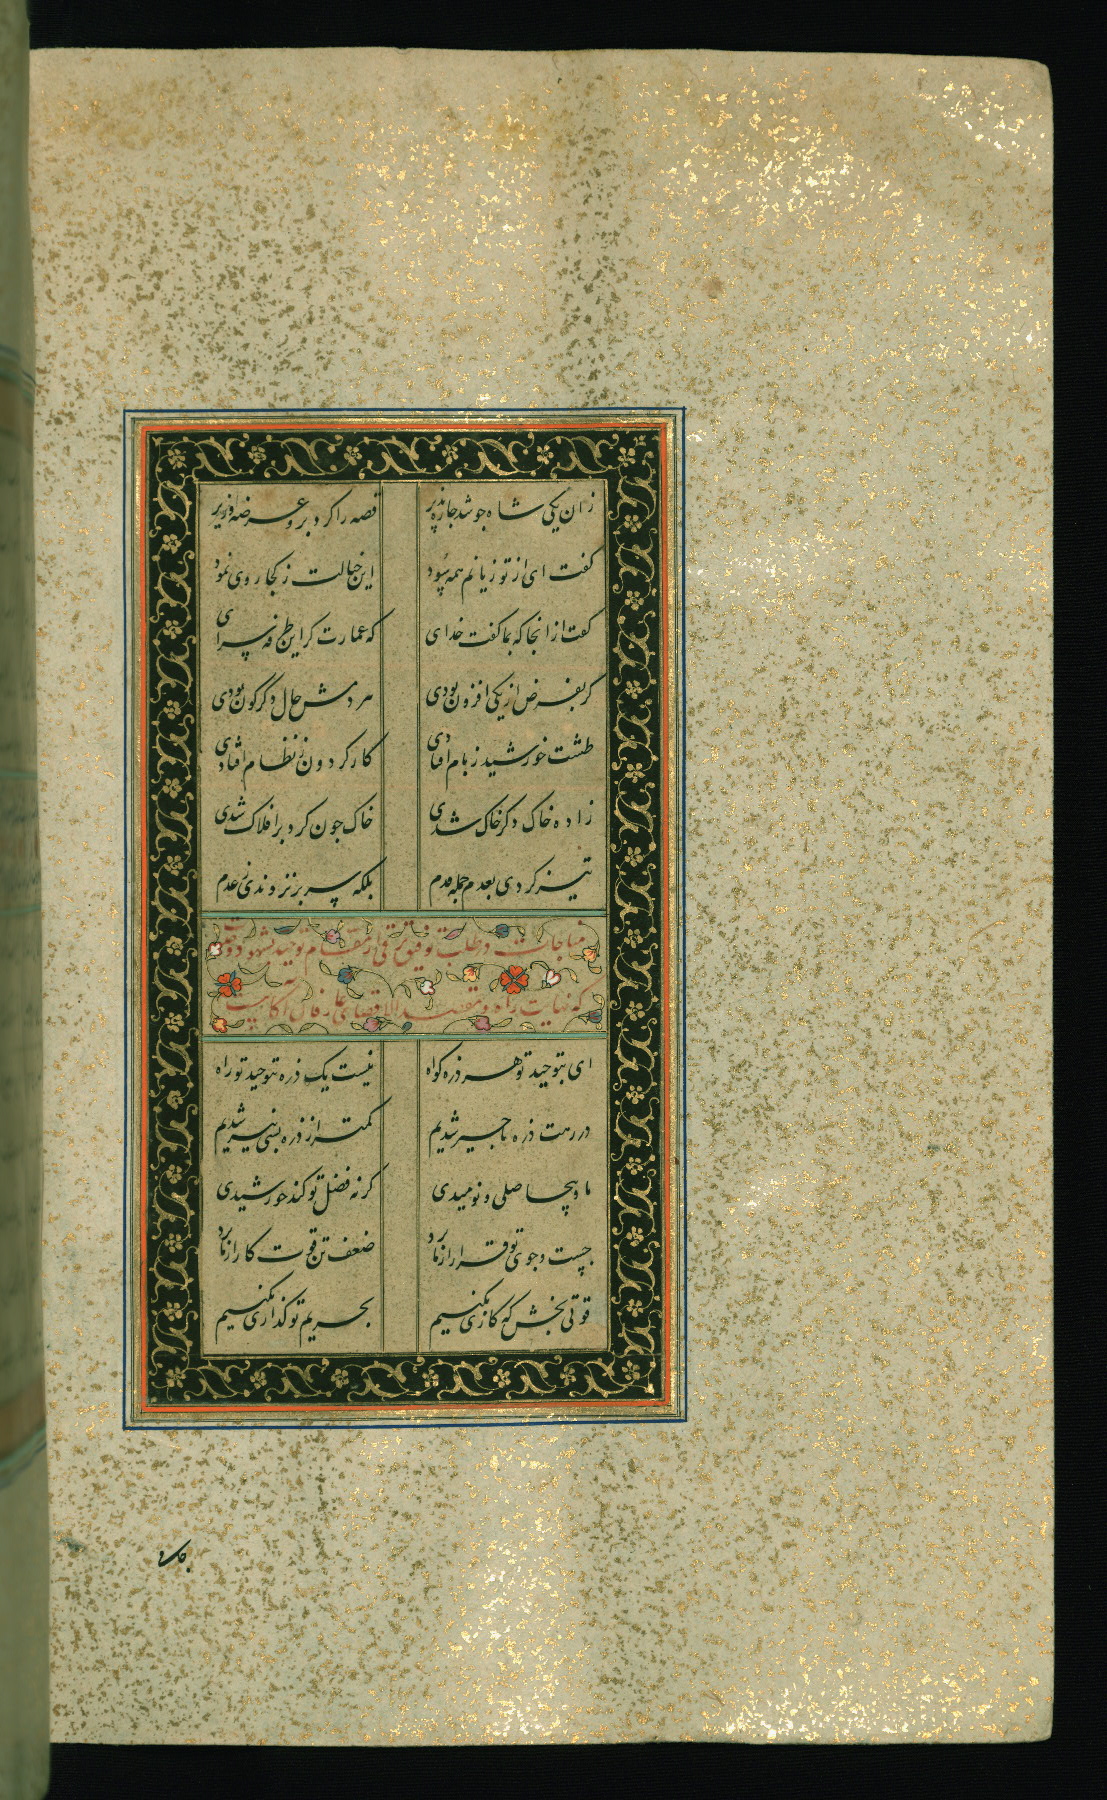 زان یکی شاه چو شد جازه پذیر
قصه را کرد برو عرضه وزیر
گفت ای از تو زیانم همه سود
این خیالت ز کجا روی نمود
گفت ازانجا که بما گفت خدای
که عمارت کر این طرفه سرای
کر بفرض از یکی افزون بودی
هر دمش حال دکرکون بودی
طشت خورشید ز بام افتادی
کار کردون ز نظام افتادی
زاده خاک دکر خاک شدی
خاک چون کرد بر افلاک شدی
تیز کردی بعدم جمله قدم
بلکه سر بر نزدندی ز عدم
مناجات در طلب توفیق ترقی از مقام توحید بشهود وحدت
که نهایت راه و مقصد اقصای عارفان آگاهست
ای بتوحید تو هر ذره کواه
نیست یک ذره بتوحید تو راه
در رهت ذره ناچیز شدیم
کمتر از ذره بسی نیز شدیم
ما و بیحاصلی و نومیدی
کر نه فضل تو کند خورشیدی
جست و جوی تو قرار از ما برد
ضعف تن قوت کار از ما برد
قوتی بخش که کاری بکنیم
بحریم تو کذاری بکنیم